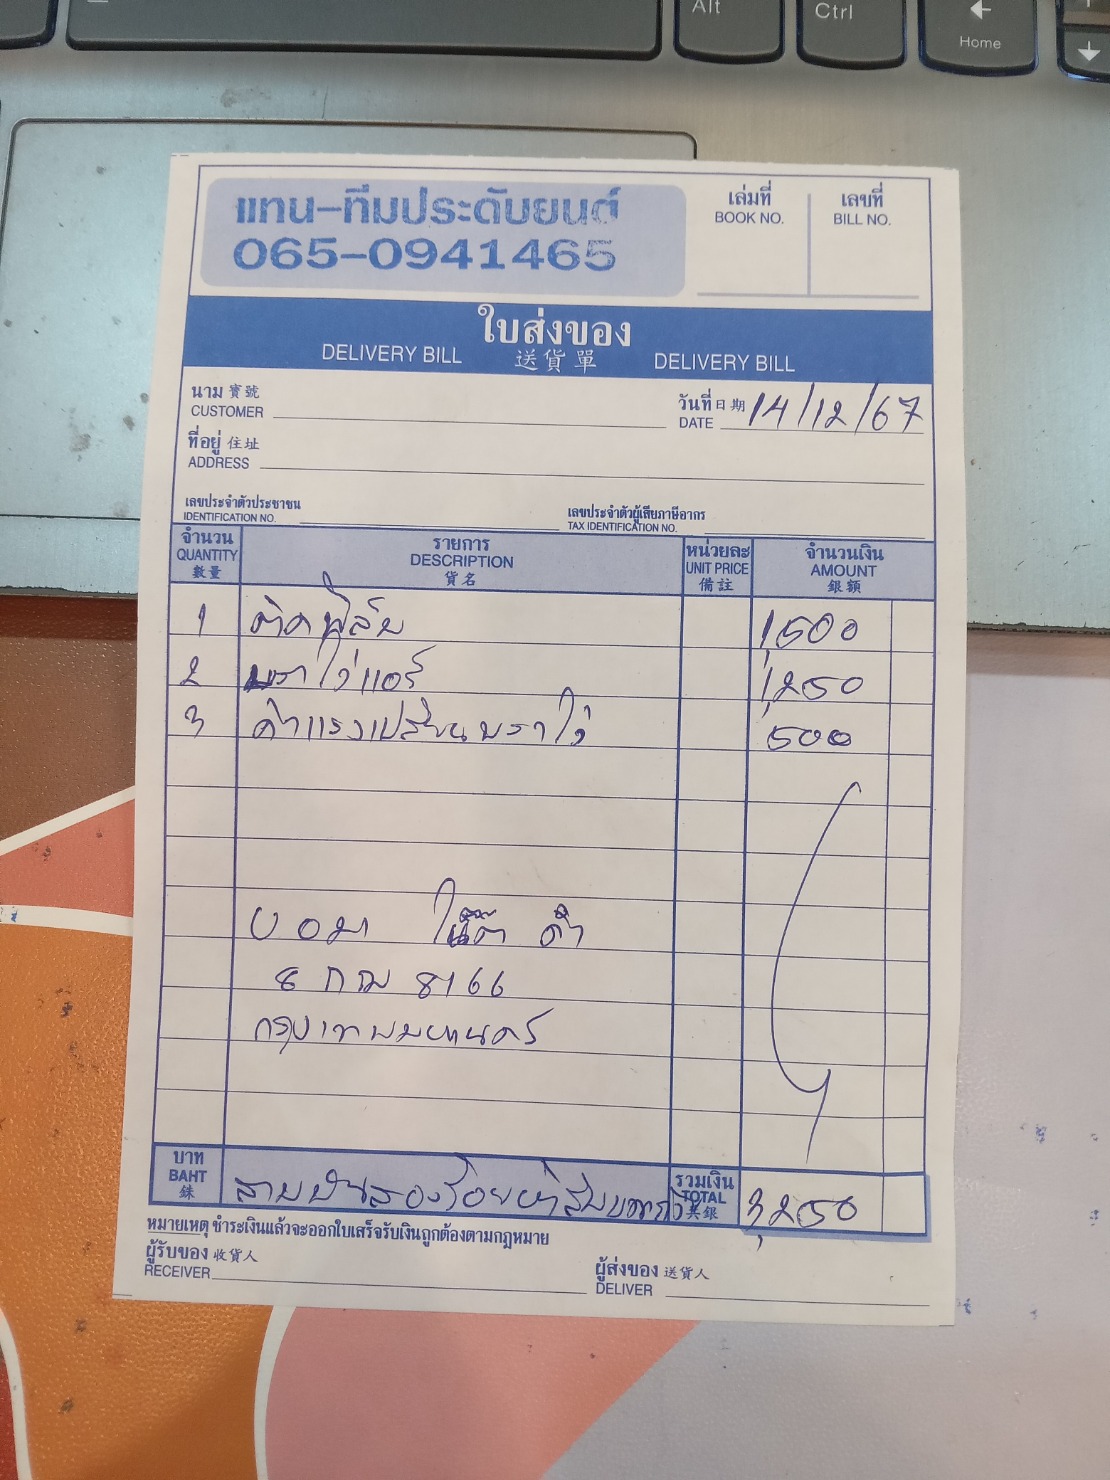 Alt
Ctrl
Home
แทน-ทีมประดับยนต์
065-0941465
เล่มที่
BOOK NO.
เลขที่
BILL NO.
ใบส่งของ
DELIVERY BILL 送貨單 DELIVERY BILL
นาม 寳號
CUSTOMER
วันที่ 日期 14/12/67
DATE
ที่อยู่ 住址
ADDRESS
เลขประจำตัวประชาชน
IDENTIFICATION NO.
เลขประจำตัวผู้เสียภาษีอากร
TAX IDENTIFICATION NO.
จำนวน รายการ หน่วยละ จำนวนเงิน
QUANTITY DESCRIPTION UNIT PRICE AMOUNT
數量 貨名 備註 銀額
1 ติดฟิล์ม 1,500
2 แอร์ 1,250
3 ค่าแรงเปลี่ยน 500
ดำ
8 กฌ 8166
กรุงเทพมหานคร
บาท
BAHT
銖
สามพันสองร้อยห้าสิบบาท
รวมเงิน
TOTAL
共銀
3,250
หมายเหตุ ชำระเงินแล้วจะออกใบเสร็จรับเงินถูกต้องตามกฎหมาย
ผู้รับของ 收貨人
RECEIVER
ผู้ส่งของ 送貨人
DELIVER